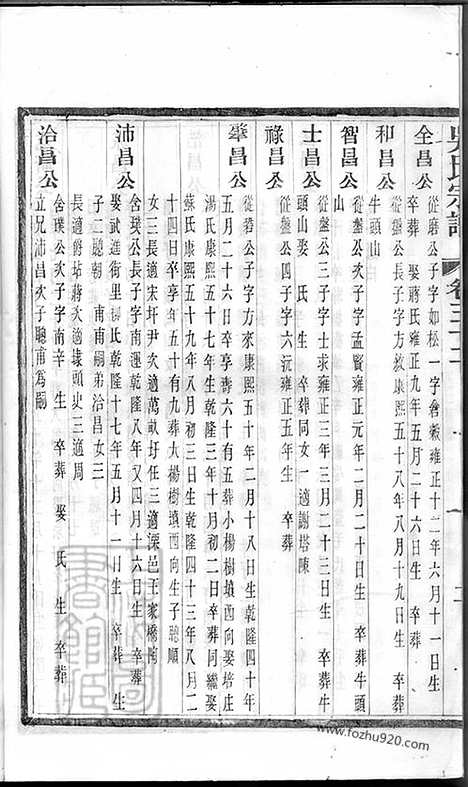 吳氏宗譜 卷三十二
全昌公 從磨公子字如松一字會嶽雍正十二年六月十一日生
卒葬 娶蔣氏雍正九年五月二十六日生 卒葬
和昌公 從盤公長子字方敘康熙五十八年八月十九日生 卒葬
牛頭山
智昌公 從盤公次子字孟賢雍正元年二月二十日生 卒葬牛頭
山
士昌公 從盤公三子字士求雍正三年三月二十三日生 卒葬牛
頭山娶 氏 生 卒葬同女一適謝塔陳
祿昌公 從盤公四子字六沅雍正五年生 卒葬
肇昌公 從磐公子字方來康熙五十年二月十八日生乾隆四十年
五月二十六日卒享壽六十有五葬小楊樹墳西向娶培庄
湯氏康熙五十七年生乾隆三年十月初二日卒葬同繼娶
蘇氏康熙五十九年八月初三日生乾隆四十三年八月二
十四日卒享年五十有九葬大楊樹墳西向生子聰順
女三長適宋圩尹次適萬畝圩任三適溧邑王家橋陶
沛昌公 舍璞公長子字南運雍正八年又四月十六日生 卒葬
娶武進街里 氏乾隆十七年五月十一日生 卒葬 生
子二聰朝 甫甫嗣弟洽昌女三
長適爵坫蔣次適埭頭史三適周
洽昌公 舍璞公次子字南辛 生 卒葬 娶 氏 生 卒葬
立兄沛昌次子聰甫爲嗣
www.fozhu920.com